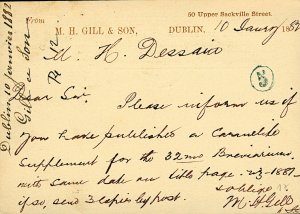 50 Upper Sackville Street.
From
M. H. GILL & SON, DUBLIN, 10 January 1882
M. H. Dessain
Dear Sir.
Please inform us if
you have published a Carmelite
Supplement for the 32mo Breviarium
with same date on title page
if so, send 3 copies by post.
& oblige
M H Gill
& Son
5
Dublin 10 janvier 1882
Gill & Son